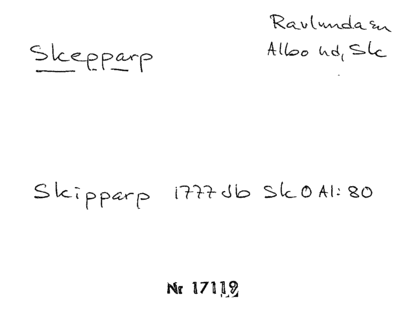 Skepparp
Ravlunda sn
Albo hd, Sk
Skipparp 1777 Jb Sk O Al: 80
Nr 17119